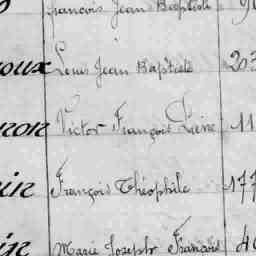 François Jean Baptiste
oux Louis Jean Baptiste 203
non Victor François 11
in François Théophile 177
in Marie Joseph François 40